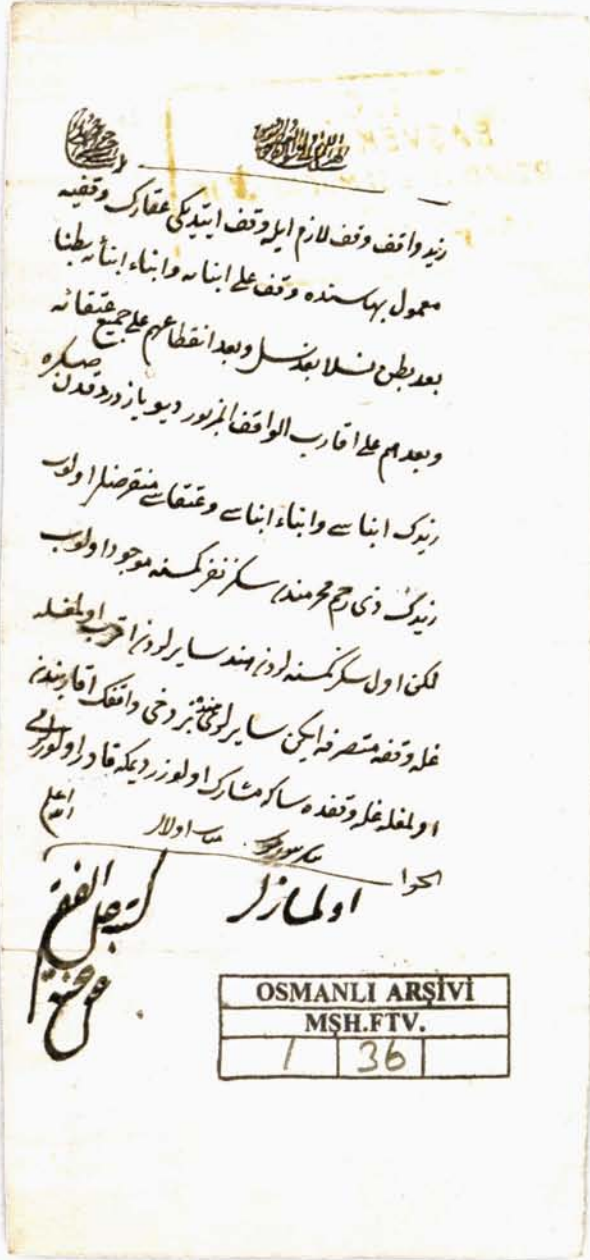 زید واقف وقف لازم ایله وقف ایتدیكی عقارك وقفیه
معمول بهاسنده وقف علی ابنائه وابناء ابنائه بطنا
بعد بطن نسلا بعد نسل وبعد انقطاعهم علی جمیع عتقائه
وبعدهم علی اقارب الواقف المزبور دیو یازدردقدن صكره
زیدك ابناسی وابناء ابناسی وعتقاسی منقرضلر اولوب
زیدك ذی رحم محرمندن سكز نفر كمسنه موجود اولوب
لكن اول سكز كمسنه لردن هند سایرلردن اقرب اولمغله
غله وقفه متصرفه ایكن سایرلری بز دخی واقفك اقاربندن
اولمغله غله وقفده سكا مشارك اولورز دیمكه قادر اولورلرمی
الجواب
الله اعلم
اولمازلر
كتبه الفقیر
عفی عنه
OSMANLI ARŞİVİ
MŞH.FTV.
1 36